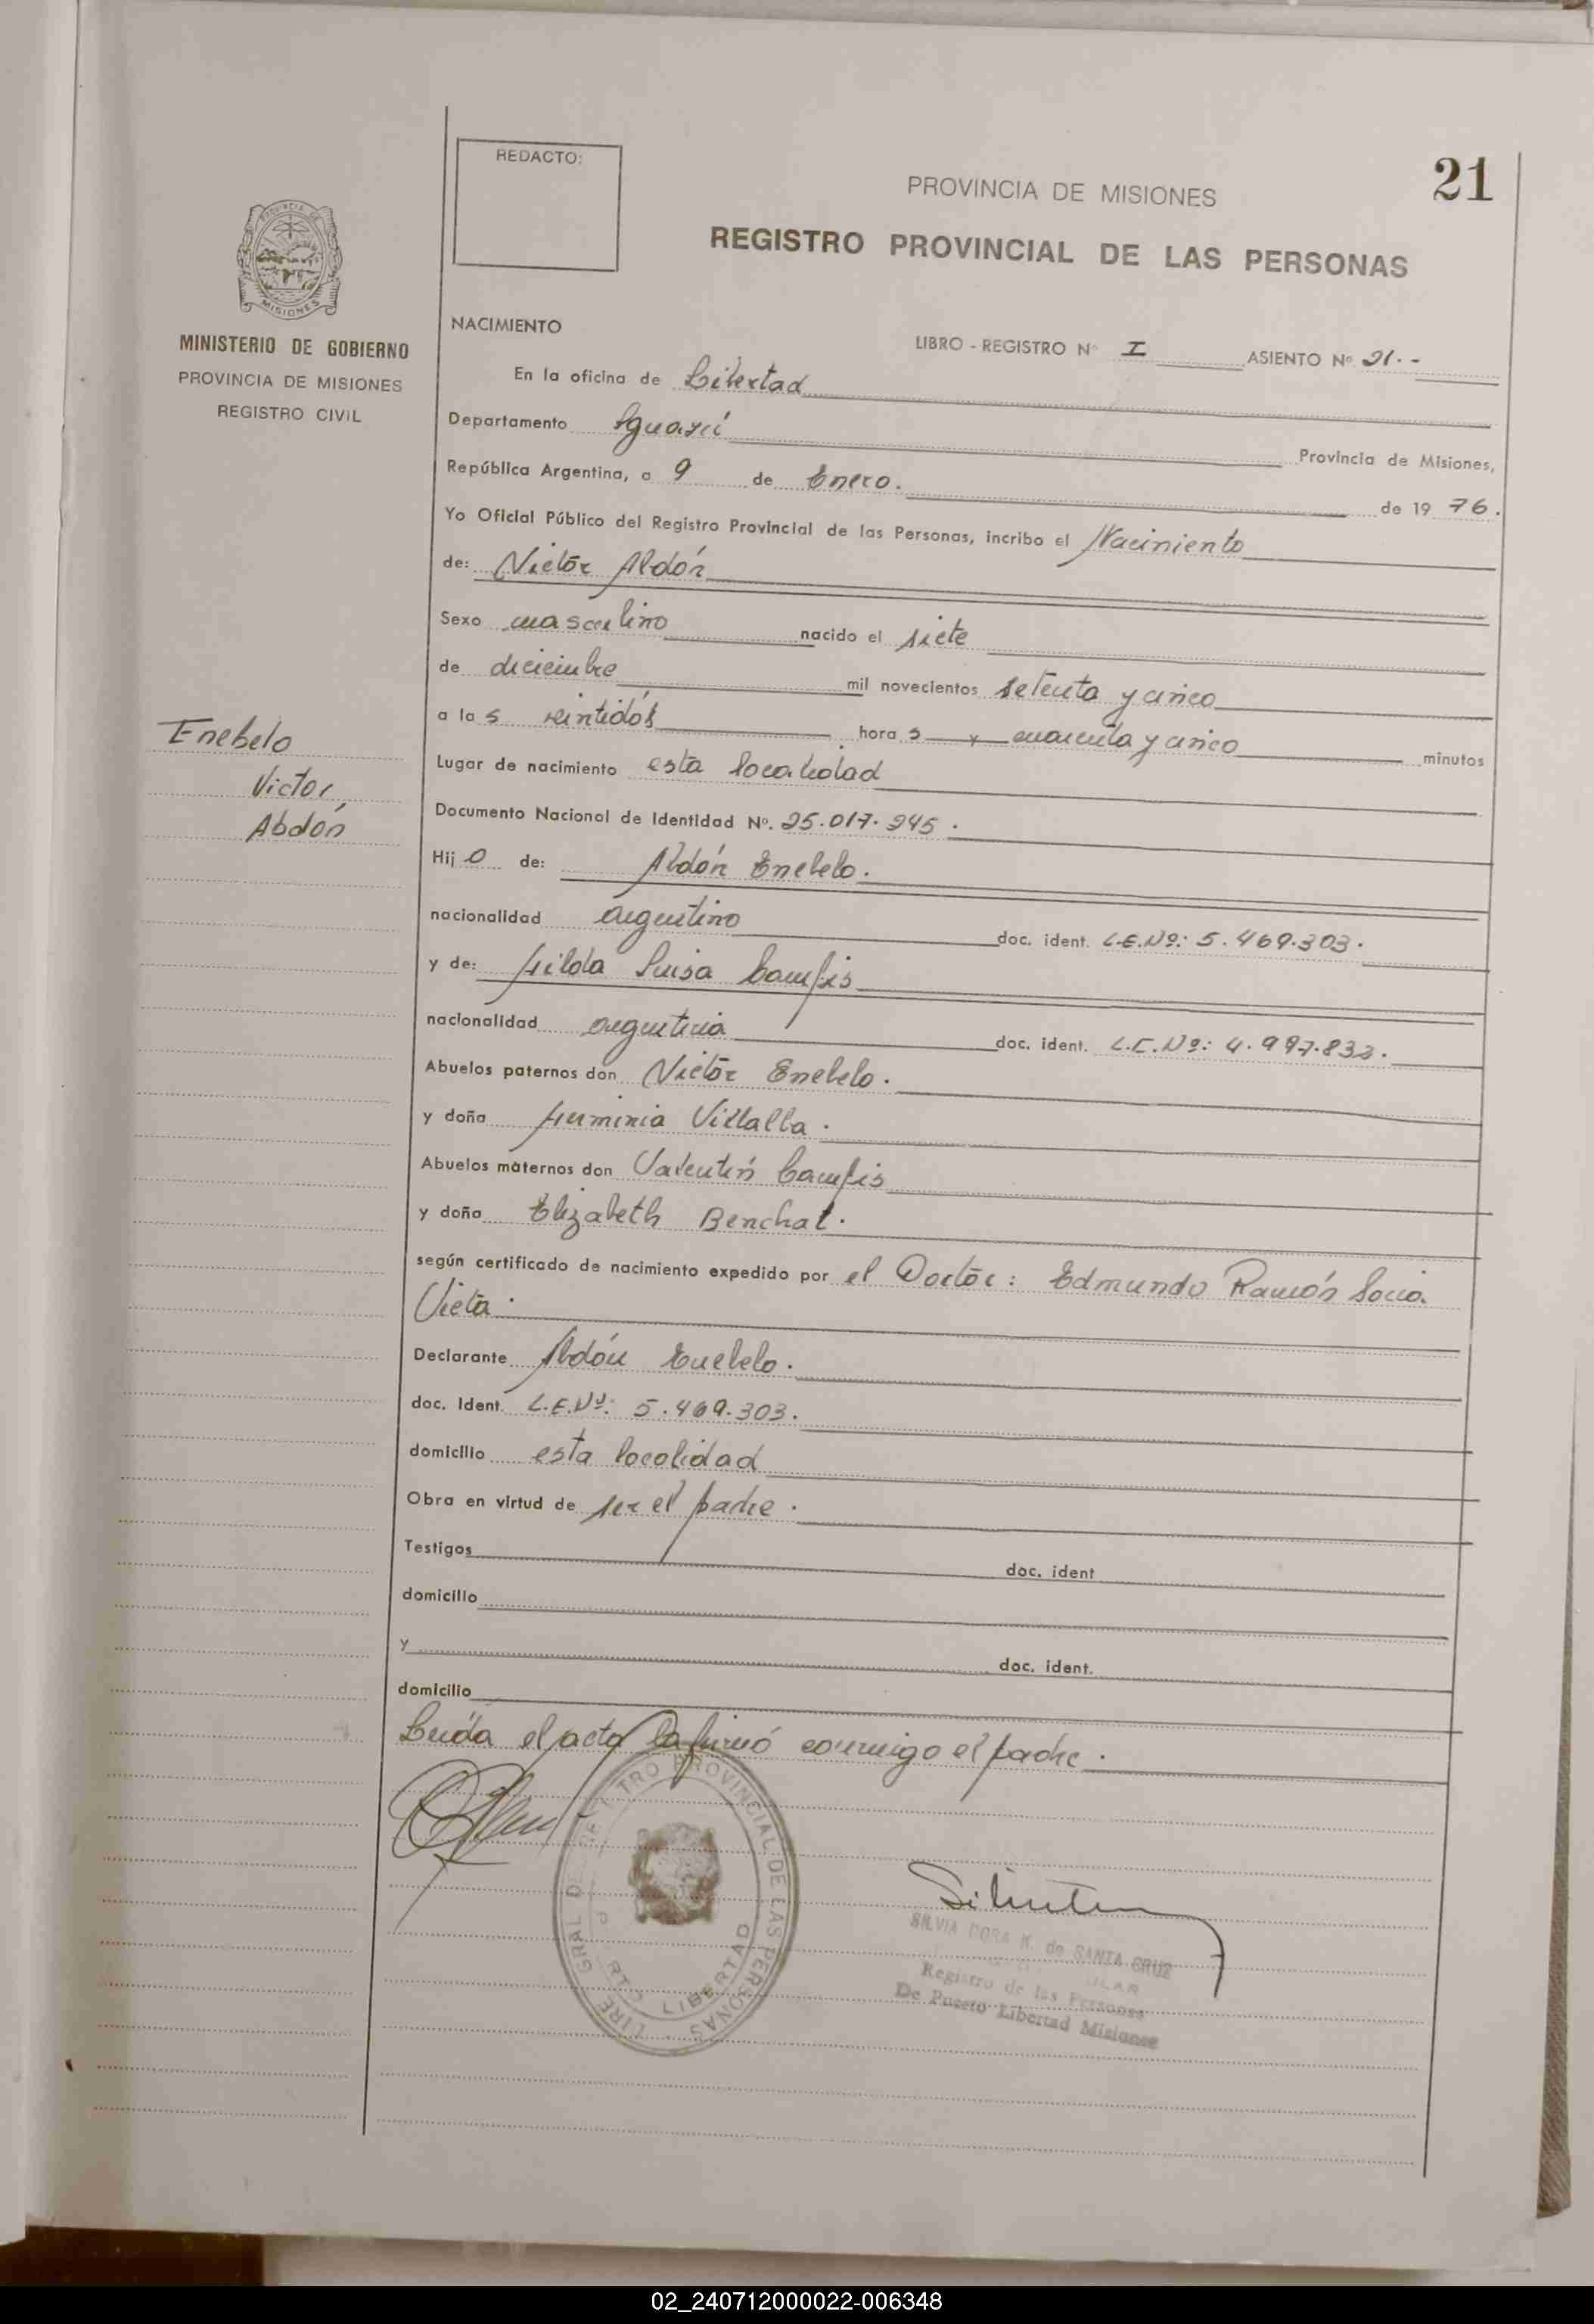 REDACTO:
PROVINCIA DE MISIONES
21
REGISTRO PROVINCIAL DE LAS PERSONAS
PROVINCIA DE
MISIONES
MINISTERIO DE GOBIERNO
PROVINCIA DE MISIONES
REGISTRO CIVIL
NACIMIENTO
LIBRO - REGISTRO Nº I ASIENTO Nº 21.-
En la oficina de Libertad
Departamento Iguazú Provincia de Misiones,
República Argentina, a 9 de Enero. de 19 76.
Yo Oficial Público del Registro Provincial de las Personas, incribo el Nacimiento
de: Victor Abdón
Sexo masculino nacido el siete
de diciembre mil novecientos setenta y cinco
a las veintidós horas y cuarenta y cinco minutos
Enebelo
Victor
Abdón
Lugar de nacimiento esta localidad
Documento Nacional de Identidad Nº. 25.017.245.
Hijo de: Abdón Enebelo.
nacionalidad argentino doc. ident. L.E.Nº: 5.469.303.
y de: Hilda Luisa
nacionalidad argentina doc. ident. L.C.Nº: 4.997.833.
Abuelos paternos don Victor Enebelo.
y doña Herminia Villalba.
Abuelos maternos don Valentín
y doña Elizabeth Benchat.
según certificado de nacimiento expedido por el Doctor: Edmundo Ramón Soria
Vieta.
Declarante Abdón Enebelo.
doc. Ident. L.E.Nº: 5.469.303.
domicilio esta localidad
Obra en virtud de ser el padre.
Testigos doc. ident
domicilio
y doc. ident.
domicilio
Leída el acta la firmó conmigo el padre.
REGISTRO PROVINCIAL DE LAS PERSONAS
LIBERTAD
SILVIA DORA K. de SANTA CRUZ
Registro de las Personas
De Puerto Libertad Misiones
02_240712000022-006348